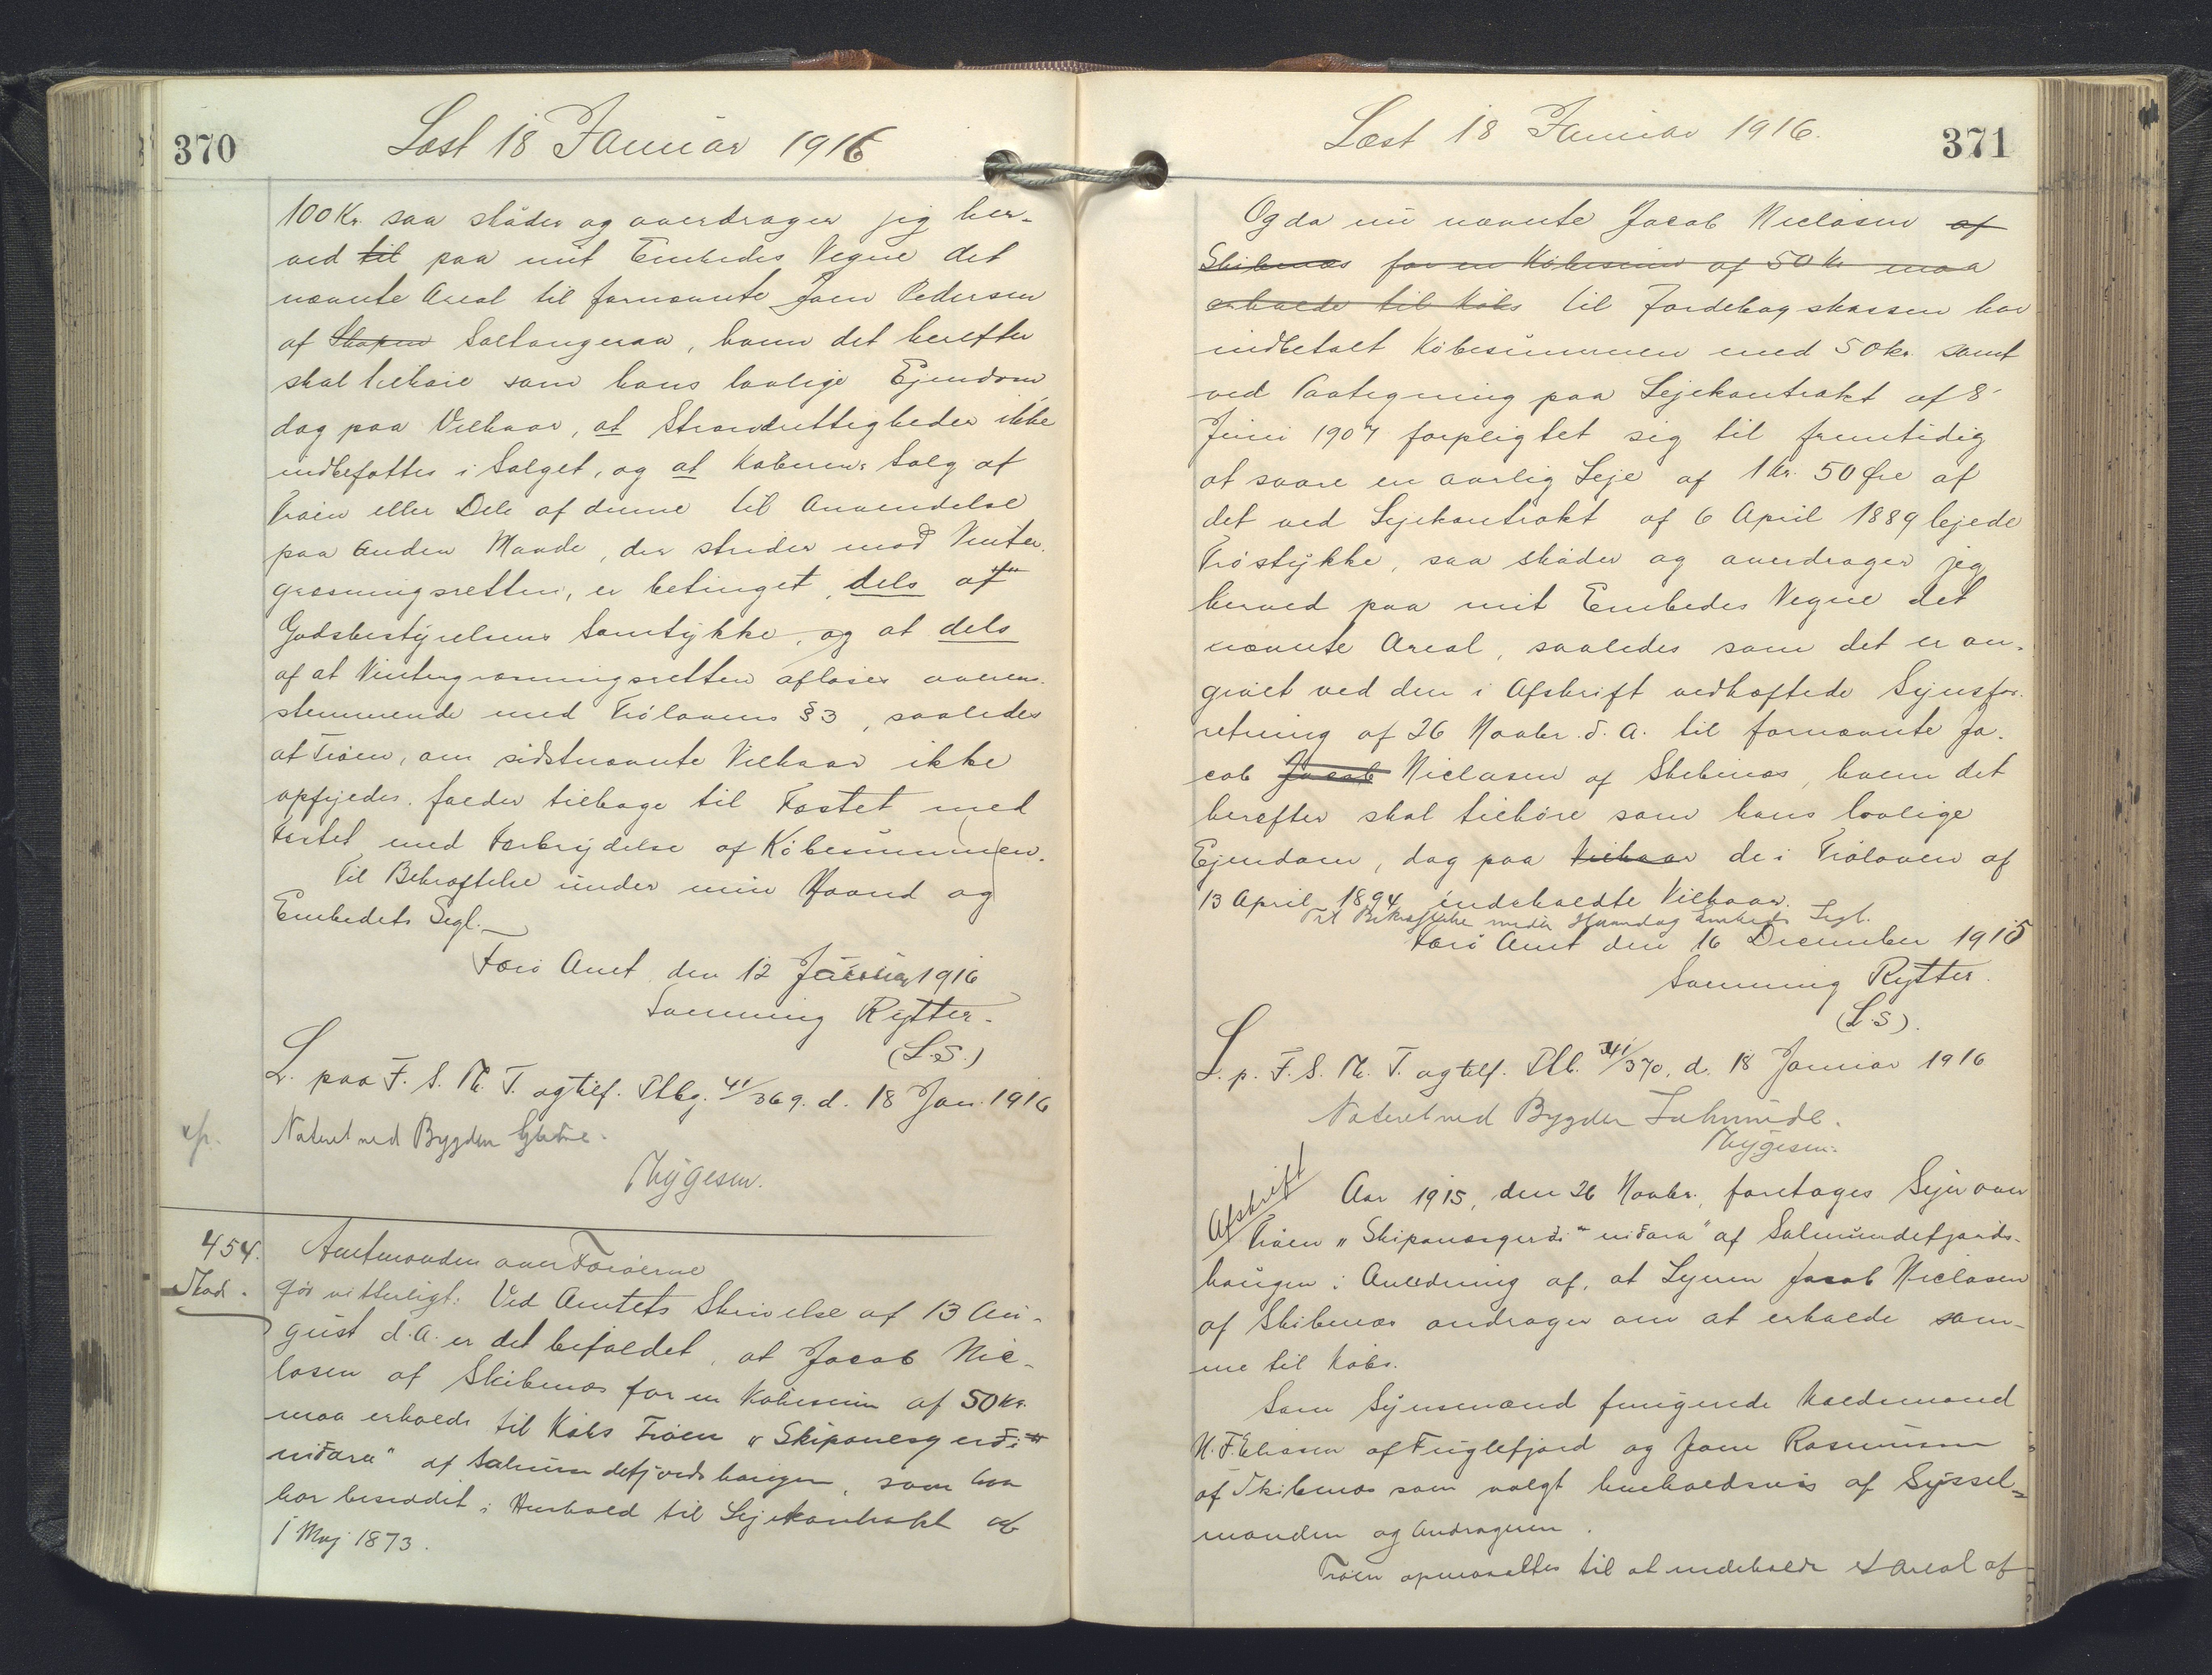 370
Læst 18 Januar 1916
100 Kr. saa skøder og overdrager jeg her-
ved til paa mit Embedes Vegne det
nævnte Areal til fornævnte Joen Pedersen
af Skopen Saltangeraa, hvem det herefter
skal tilhøre som hans lovlige Ejendom
dog paa Vilkaar, at Strandrettigheder ikke
indbefattes i Salget, og at Køberens Salg af
Trøen eller Dele af denne til Anvendelse
paa anden Maade, der strider mod Vinter-
græsningsretten, er betinget, dels af
Godsbestyrelsens Samtykke, og at dels
af at Vintergræsningsretten afløses overens-
stemmende med Trølovens § 3, saaledes
at Trøen, om sidstnævnte Vilkaar ikke
opfyldes, falder tilbage til Fæstet med
Fæstet med Forbrydelse af Købesummen.
Til Bekræftelse under min Haand og
Embedets Segl.
Færø Amt, den 12 Januar 1916
Svenning Rytter.
(L.S.)
L. paa F. S. M. T. og tilf. Tlbg. 41/369. d. 18 Jan. 1916
Noteret ved Bygden
Thygesen.
454.
Skød.
Amtmanden over Færøerne
gør vitterligt: Ved Amtets Skrivelse af 13 Au-
gust d.A. er det bifaldet, at Jacob Nic-
lasen af Skibenæs for en Købesum af 50 Kr.
maa erholde til Købs Trøen "Skipanesgerði
niðara" af Salmundefjords haugen, som han
har besiddet i Henhold til Lejekontrakt af
1 Maj 1873.
371
Læst 18 Januar 1916.
Og da nu nævnte Jacob Niclasen af
Skibenæs for en Købesum af 50 Kr maa
erholde til Købs til Jordebogskassen har
indbetalt Købesummen med 50 kr. samt
ved Paategning paa Lejekontrakt af 8'
Juni 1907 forpligtet sig til fremtidig
at svare en aarlig Leje af 1 Kr. 50 Øre af
det ved Lejekontrakt af 6 April 1889 lejede
Trøstykke, saa skøder og overdrager jeg
herved paa mit Embedes Vegne det
nævnte Areal, saaledes som det er an-
givet ved den i Afskrift vedhæftede Synsfor-
retning af 26 Novbr. d. A. til fornævnte Ja-
cob Jacob Niclasen af Skibenæs, hvem det
herefter skal tilhøre som hans lovlige
Ejendom, dog paa Vilkaar de i Trøloven af
13 April 1894 indeholdte Vilkaar.
Til Bekræftelse under Haand og Embeds Segl.
Færø Amt den 16 December 1915
Svenning Rytter.
(L.S).
L. p. F. S. M. T. og tilf. Tlb. 41/370, d. 18 Januar 1916
Noteret ved Bygden
Thygesen.
Afskrift
Aar 1915, den 26 Novbr. foretoges Syn over
Trøen "Skipanesgerði niðara" af Salmundefjords-
haugen i Anledning af, at Lejeren Jacob Niclasen
af Skibenæs andrager om at erholde sam-
me til Købs.
Som Synsmænd fungerede Kaldsmand
H. F. Eliasen af Fuglefjord og Joen Rasmussen
af Skibenæs som valgt henholdsvis af Syssel-
manden og Andrageren.
Trøen opmaaltes til at indeholde et Areal af